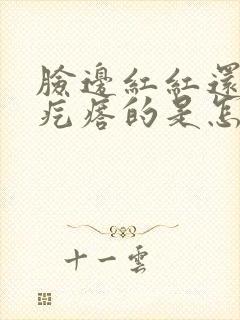 臉邊紅紅還
疙瘩的是怎
十一雲